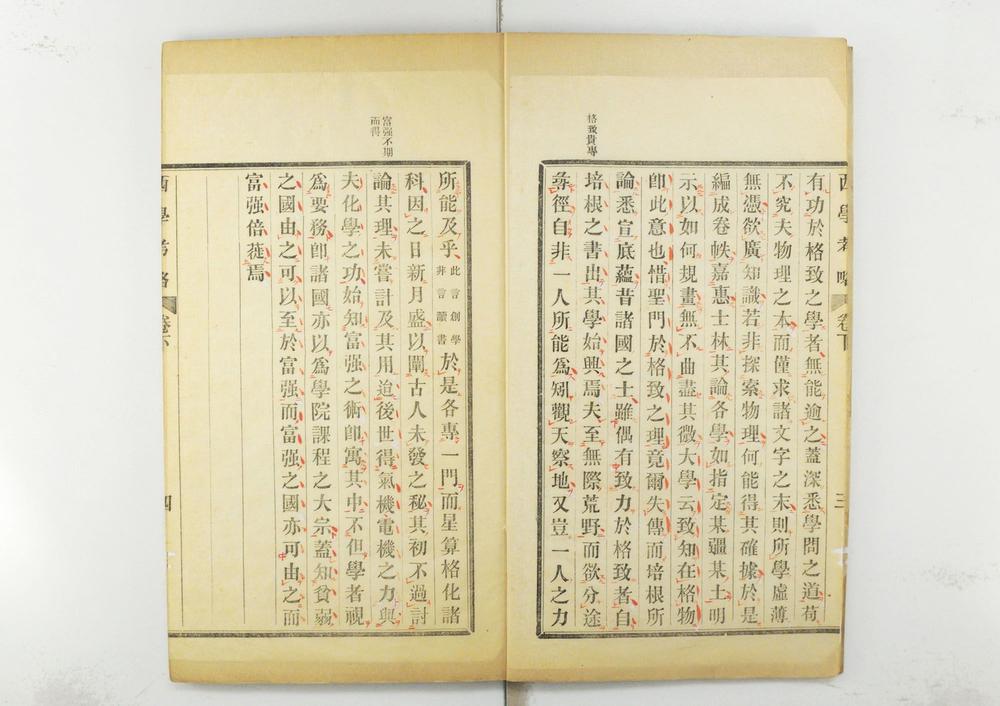 西學考略
卷下
三
格致貴專
有功於格致之學者無能逾之蓋深悉學問之道苟
不究夫物理之本而僅求諸文字之末則所學虛薄
無憑欲廣知識若非探索物理何能得其確據於是
編成卷帙嘉惠士林其論各學如指定某疆某土明
示以如何規畫無不曲盡其微大學云致知在格物
卽此意也惜聖門於格致之理竟爾失傳而培根所
論悉宣底蘊昔諸國之士雖偶有致力於格致者自
培根之書出其學始興焉夫至無際荒野而欲分途
尋徑自非一人所能爲矧觀天察地又豈一人之力
富强不期
而得
所能及乎此言創學非言讀書於是各專一門而星算格化諸
科因之日新月盛以闡古人未發之秘其初不過討
論其理未嘗計及其用迨後世得氣機電機之力與
夫化學之功始知富强之術卽寓其中不但學者視
爲要務卽諸國亦以爲學院課程之大宗蓋知貧弱
之國由之可以至於富强而富强之國亦可由之而
富强倍蓰焉
西學考略
卷下
四